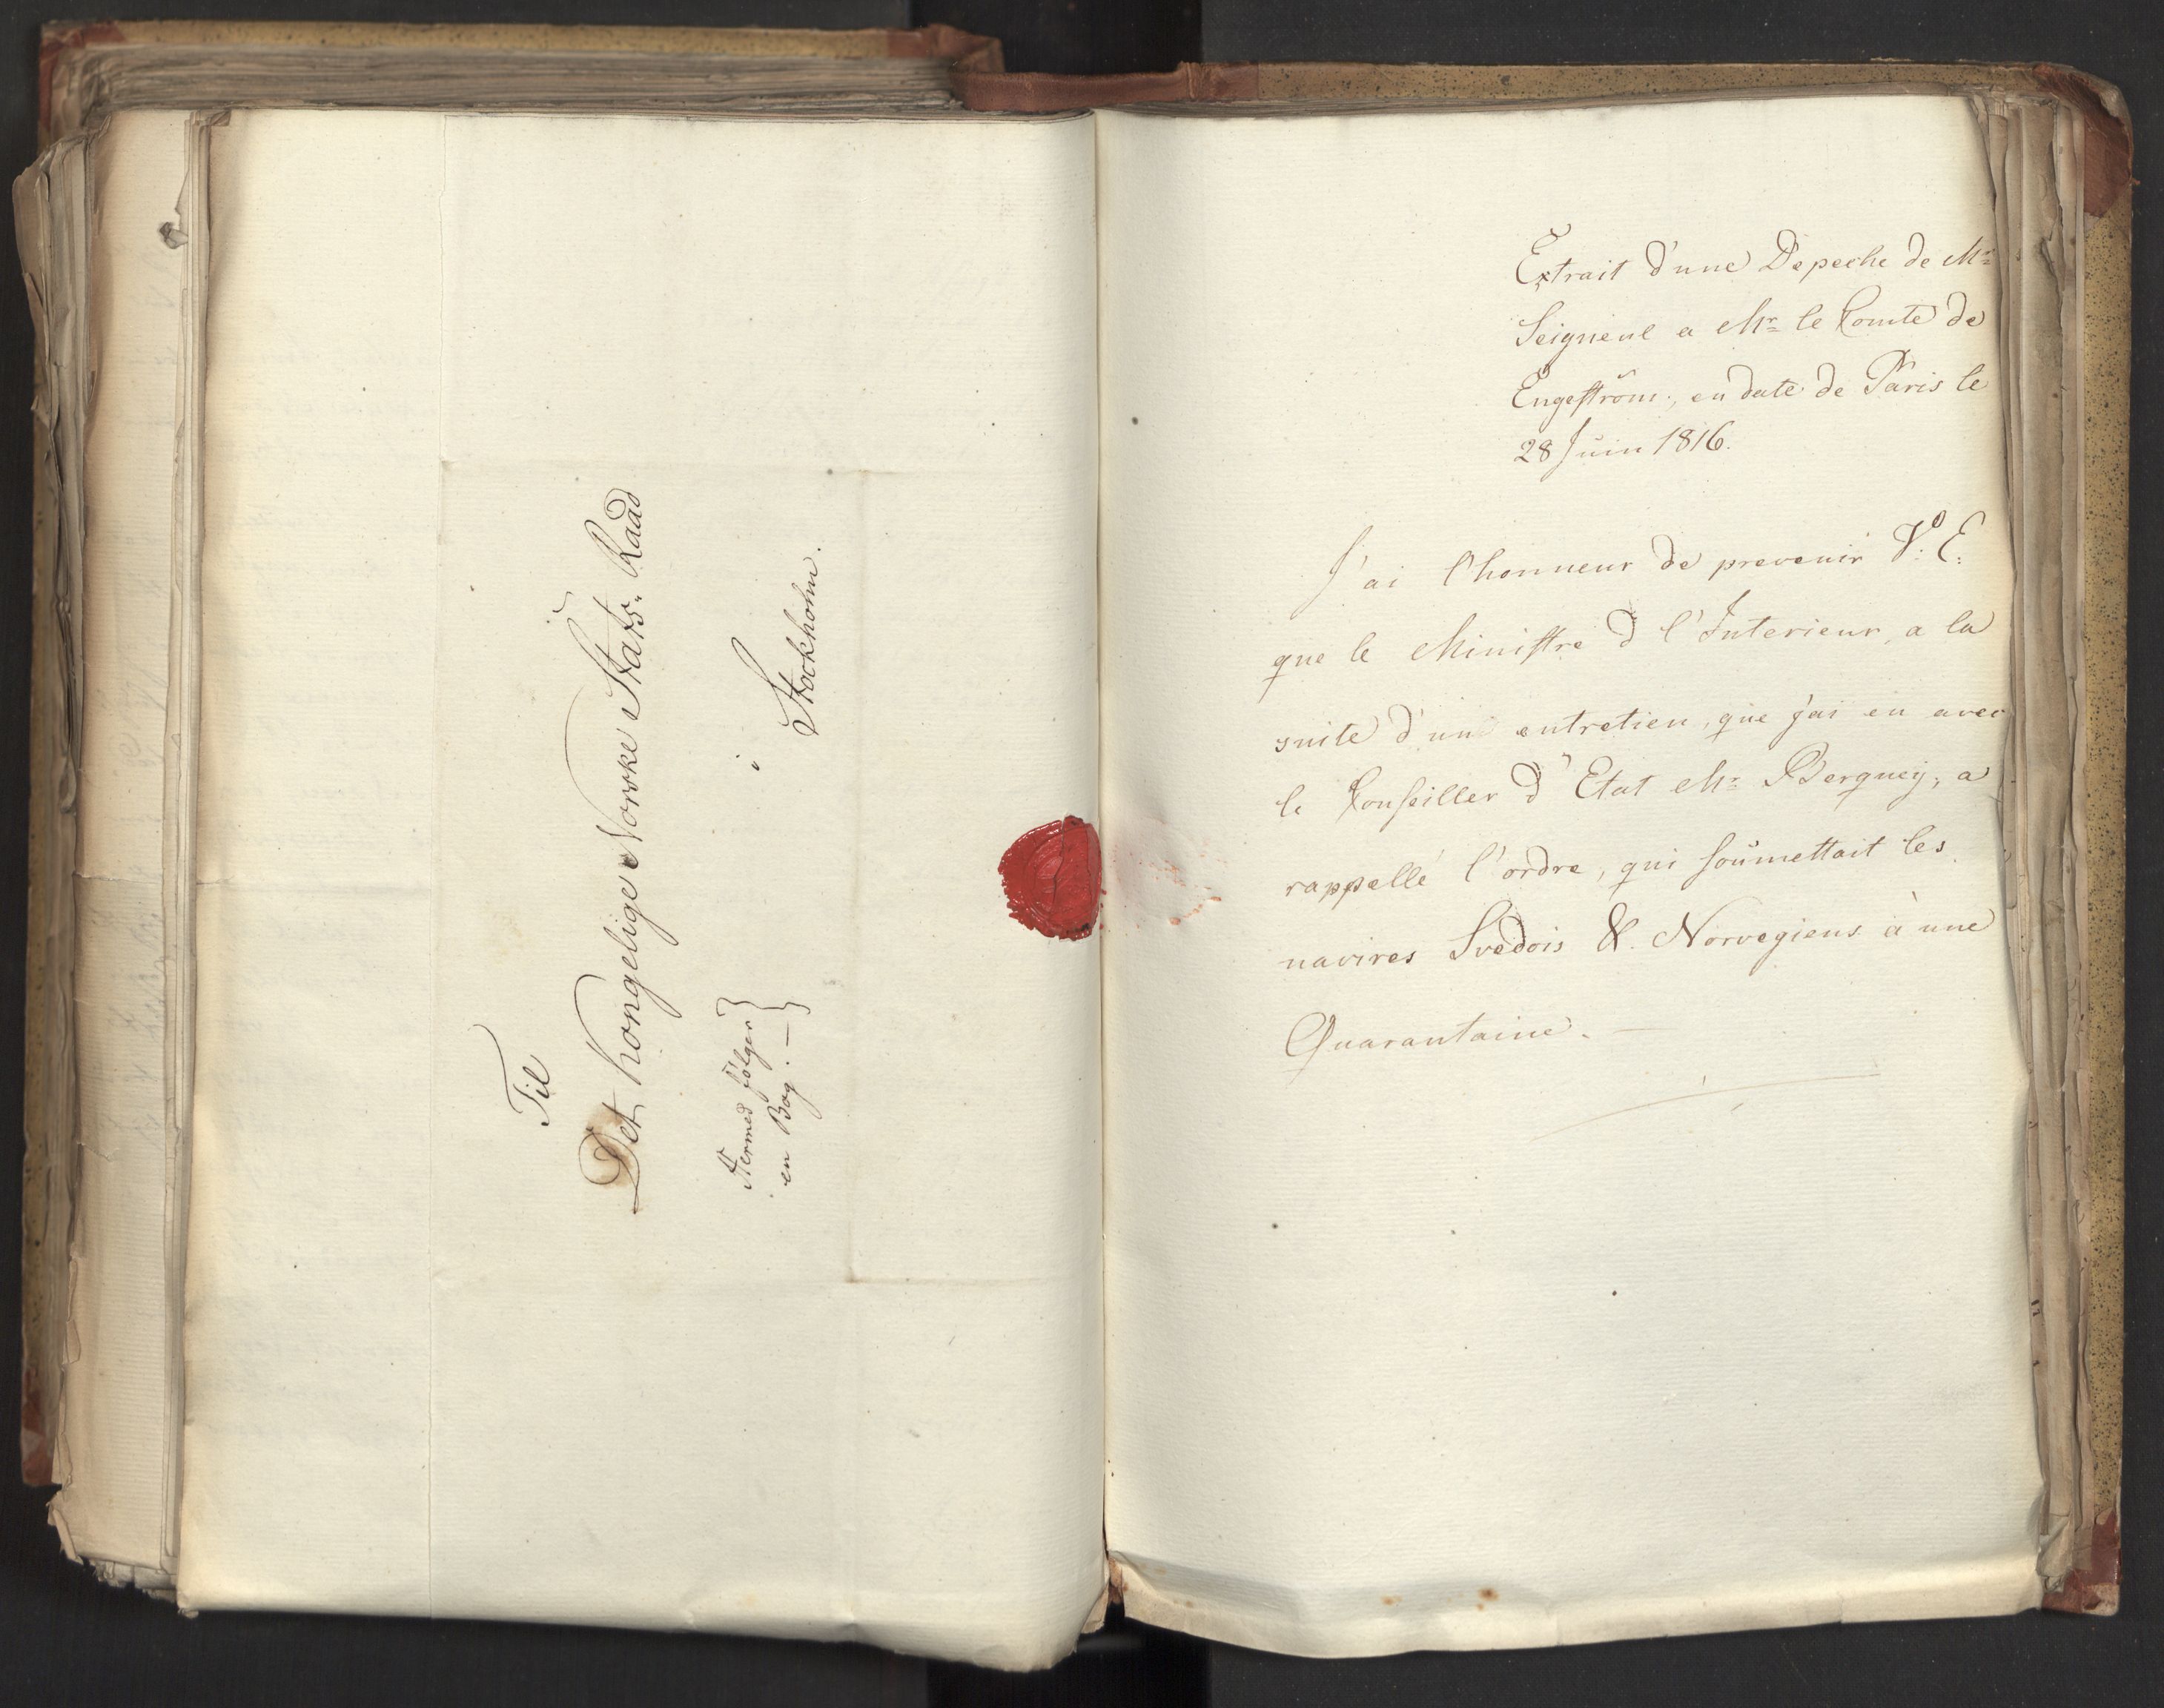 Til
Det kongelige Norske Stats-Raad
i
Stockholm.
Hermed følger
en Bog. —
Extrait d'une Depeche de Mr
Seigneul a Mr le Comte de
Engeström, en date de Paris le
28 Juin 1816.
J'ai l'honneur de prevenir V. E.
que le Ministre d l'Interieur, a la
suite d'un entretien, que j'ai eu avec
le Conseiller d'Etat Mr Bequey, a
rappellé l'ordre, qui soumettait les
navires Svedois & Norvegiens à une
Quarantaine. —